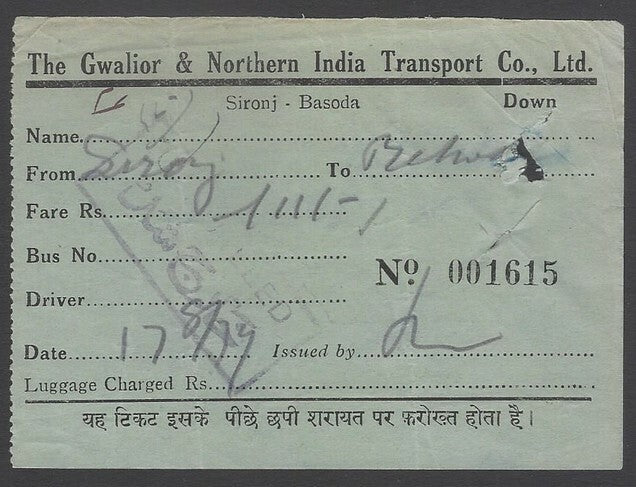 The Gwalior & Northern India Transport Co., Ltd.
Sironj - Basoda Down
Name
From Sironj To
Fare Rs. /111/-
Bus No.
No. 001615
Driver
Date 17 8/79 Issued by
Luggage Charged Rs.
यह टिकट इसके पीछे छपी शरायत पर फ़रोख्त होता है।